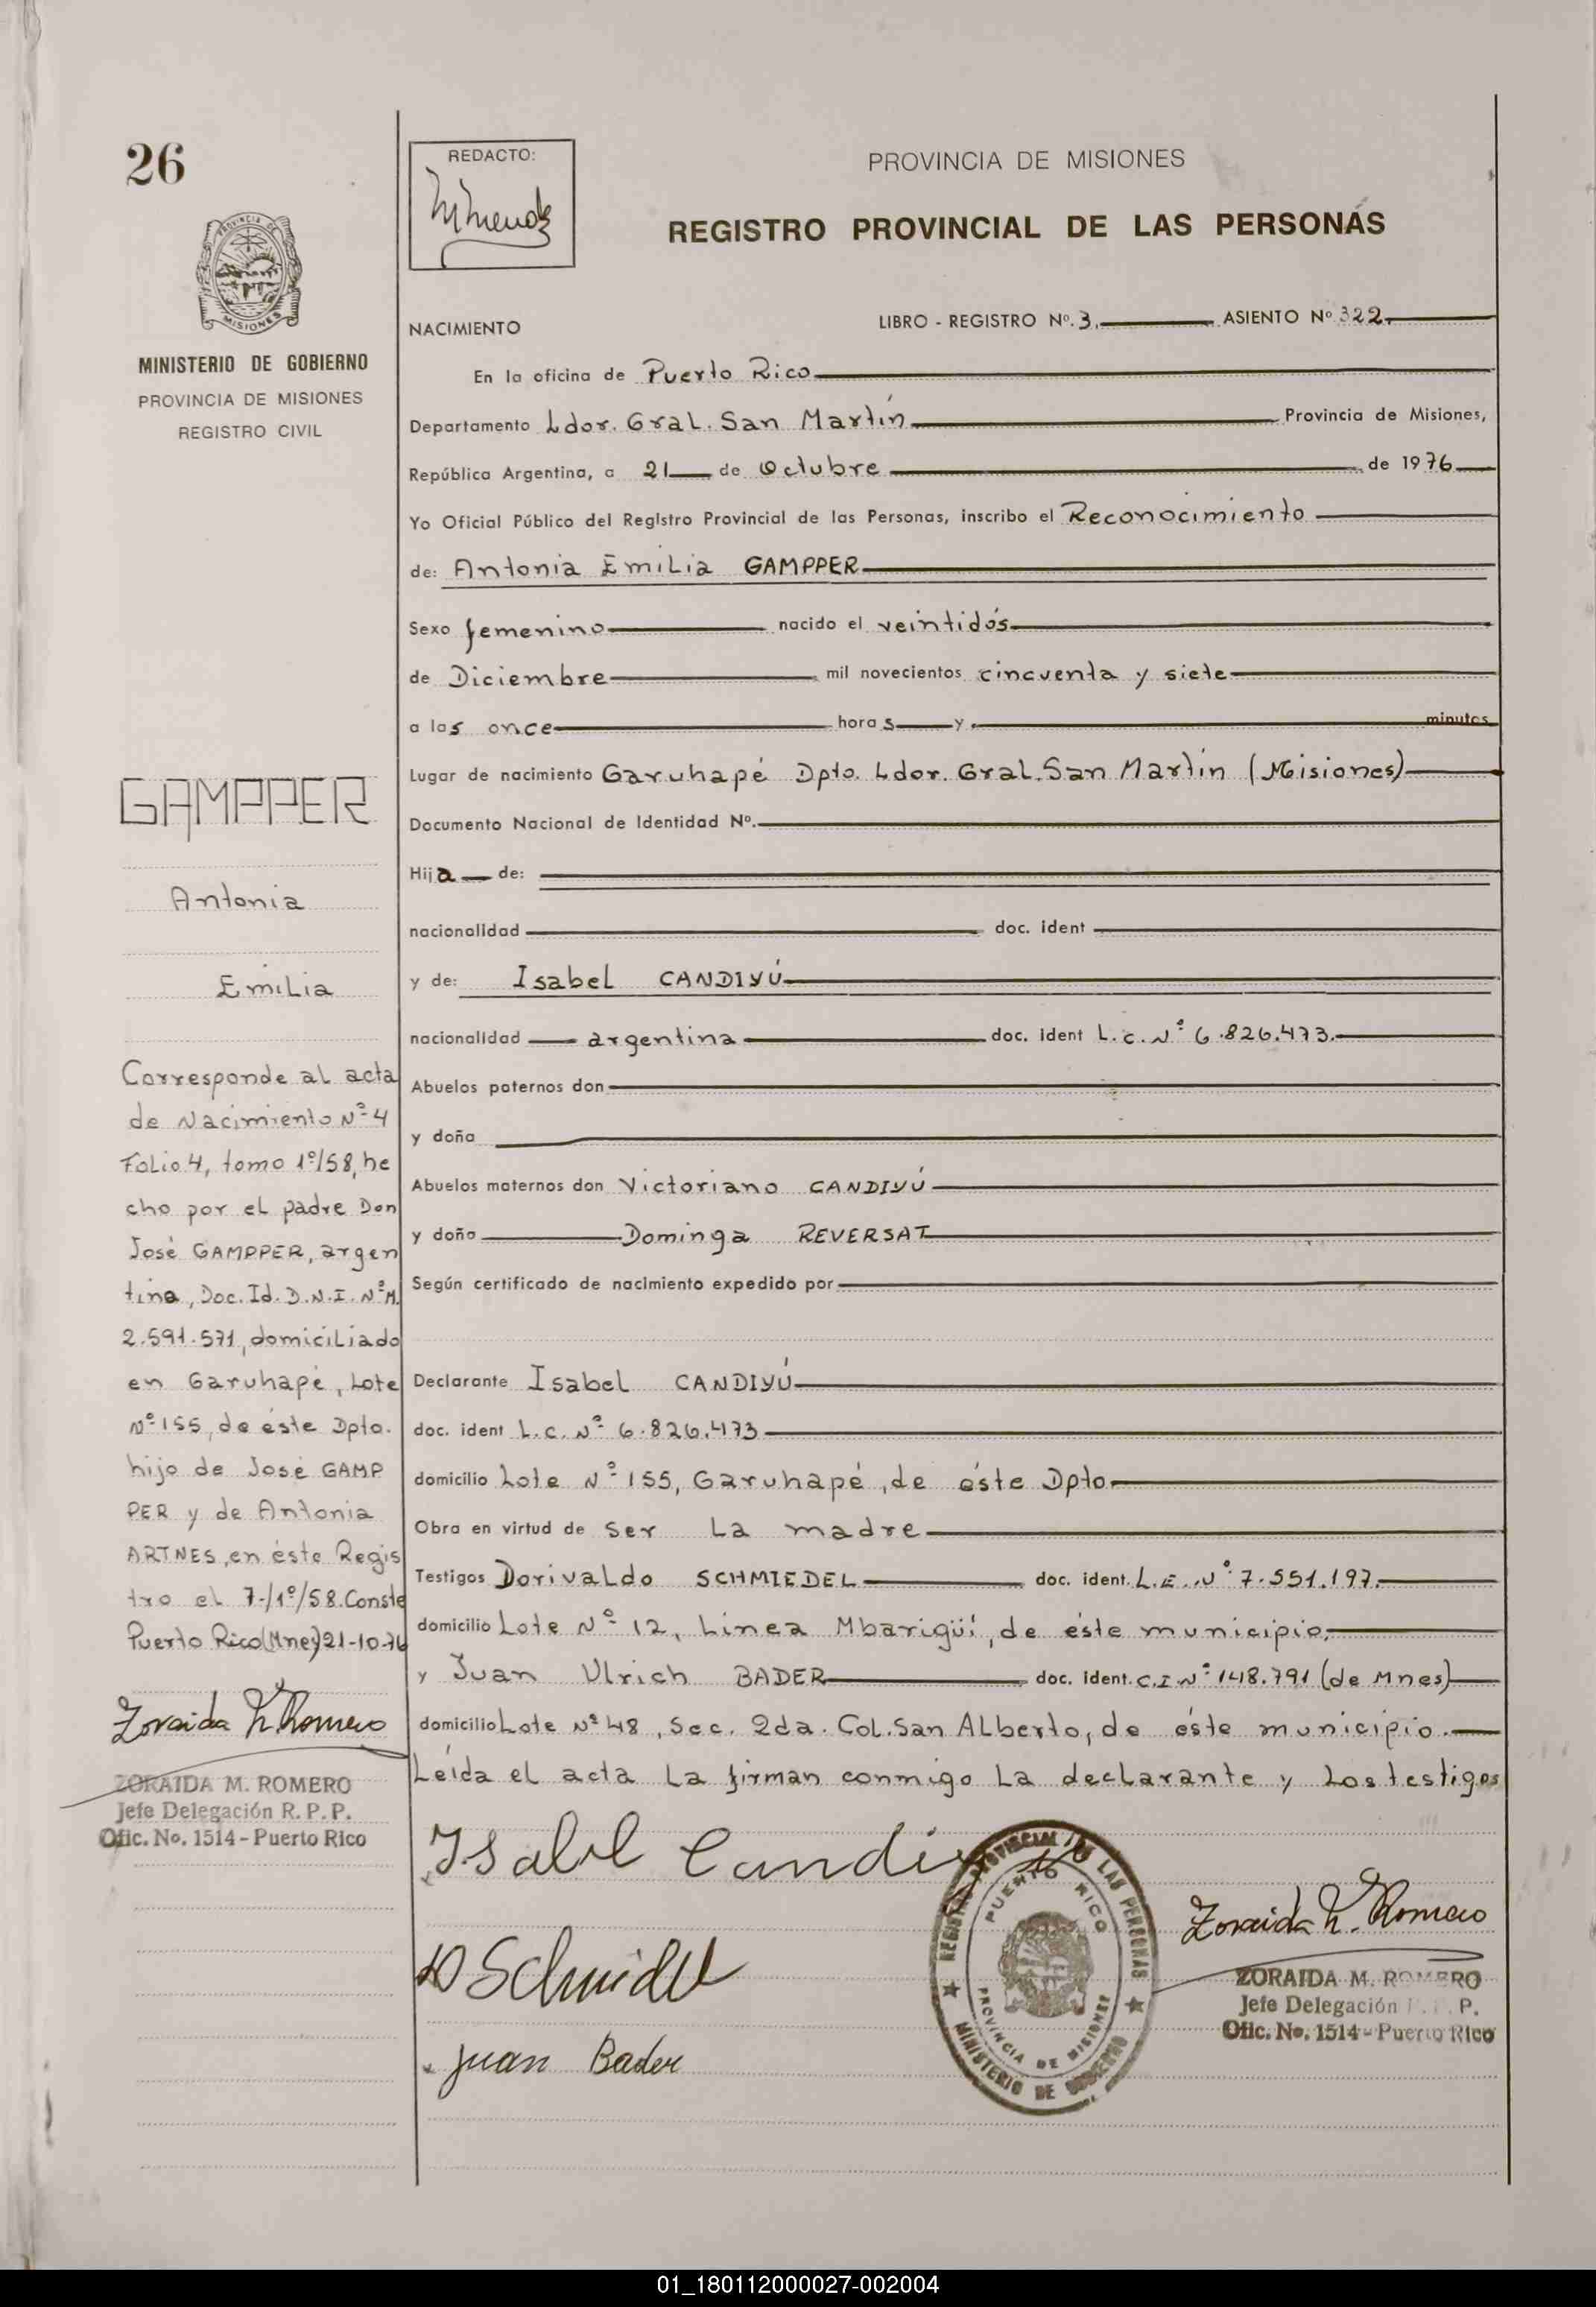 26
REDACTO:
PROVINCIA DE MISIONES
REGISTRO PROVINCIAL DE LAS PERSONAS
MISIONES
MINISTERIO DE GOBIERNO
PROVINCIA DE MISIONES
REGISTRO CIVIL
NACIMIENTO
LIBRO - REGISTRO Nº. 3. ASIENTO Nº 322.
En la oficina de Puerto Rico
Departamento Ldor. Gral. San Martín Provincia de Misiones,
República Argentina, a 21 de Octubre de 1976
Yo Oficial Público del Registro Provincial de las Personas, inscribo el Reconocimiento
de: Antonia Emilia GAMPPER
Sexo femenino nacido el veintidós
de Diciembre mil novecientos cincuenta y siete
a las once horas y minutos
Lugar de nacimiento Garuhapé Dpto. Ldor. Gral. San Martín (Misiones)
Documento Nacional de Identidad Nº.
Hija de:
nacionalidad doc. ident
y de: Isabel CANDIYÚ
nacionalidad argentina doc. ident L.C. Nº 6.826.473.
Abuelos paternos don
y doña
Abuelos maternos don Victoriano CANDIYÚ
y doña Dominga REVERSAT
Según certificado de nacimiento expedido por
Declarante Isabel CANDIYÚ
doc. ident L.C. Nº 6.826.473
domicilio Lote Nº 155, Garuhapé, de éste Dpto
Obra en virtud de ser La madre
Testigos Dorivaldo SCHMIEDEL doc. ident. L.E. Nº 7.551.197.
domicilio Lote Nº 12, Línea Mbarigüí, de éste municipio,
y Juan Ulrich BADER doc. ident. C.I. Nº 148.791 (de Mnes)
domicilio Lote Nº 48, Sec. 2da. Col. San Alberto, de éste municipio.
Leída el acta La firman conmigo La declarante y Los testigos
GAMPPER
Antonia
Emilia
Corresponde al acta
de Nacimiento Nº 4
Folio 4, tomo 1º/58, he
cho por el padre Don
José GAMPPER, argen
tina, Doc. Id. D.N.I. Nº M.
2.591.571, domiciliado
en Garuhapé, Lote
Nº 155, de éste Dpto.
hijo de José GAMP
PER y de Antonia
ARTNES, en éste Regis
tro el 7-/1º/58. Conste
Puerto Rico (Mnes) 21-10-76
Zoraida M. Romero
ZORAIDA M. ROMERO
Jefe Delegación R. P. P.
Ofic. No. 1514 - Puerto Rico
Isabel Candiyú
D Schmidel
Juan Bader
REGISTRO PROVINCIAL DE LAS PERSONAS
PUERTO RICO
PROVINCIA DE MISIONES
MINISTERIO DE GOBIERNO
Zoraida M. Romero
ZORAIDA M. ROMERO
Jefe Delegación R. P. P.
Ofic. No. 1514 - Puerto Rico
01_180112000027-002004